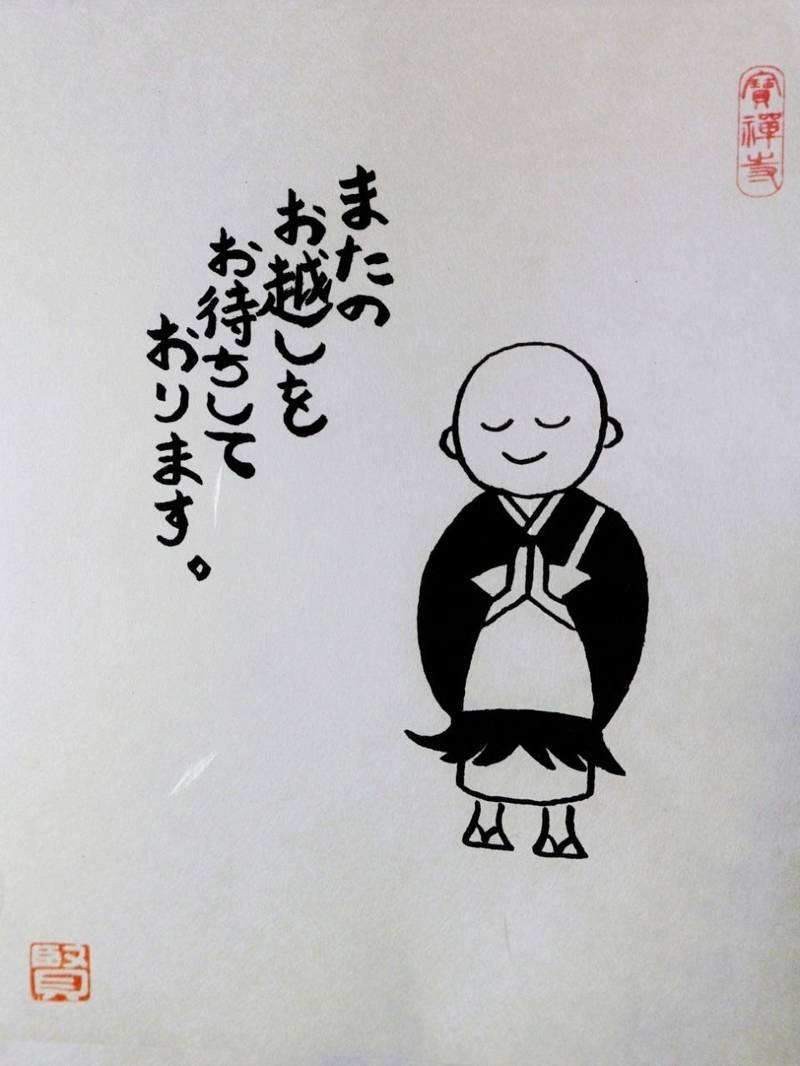 寶禪寺
またの
お越しを
お待ちして
おります。
賢